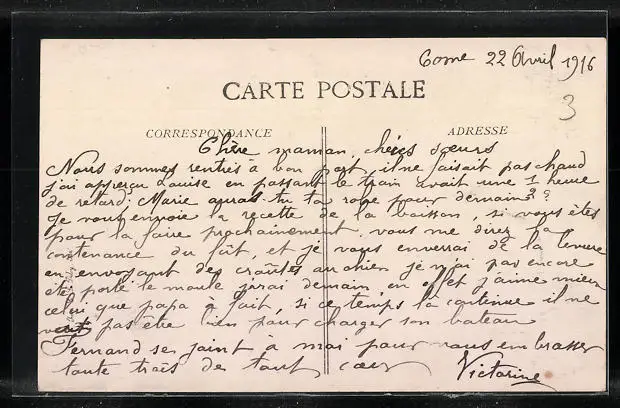 Come 22 Avril 1916
CARTE POSTALE
3
CORRESPONDANCE
ADRESSE
Chère maman, chères sœurs
Nous sommes rentrés à bon port, il ne faisait pas chaud
j'ai apperçu Louise en passant le train avait une 1 heure
de retard; Marie auras-tu ta robe pour demain?
Je vous envoie la recette de la boisson, si vous êtes
pour la faire prochainement, vous me direz la
contenance du fût, et je vous enverrai de la levure
en envoyant des croûtes au chien je n'ai pas encore
été porté le moule j'irai demain, en effet j'aime mieux
celui que papa a fait, si ce temps là continue il ne
veut pas être bien pour charger son bateau
Fernand se joint à moi pour vous embrasser
toute trois de tout cœur Victorine